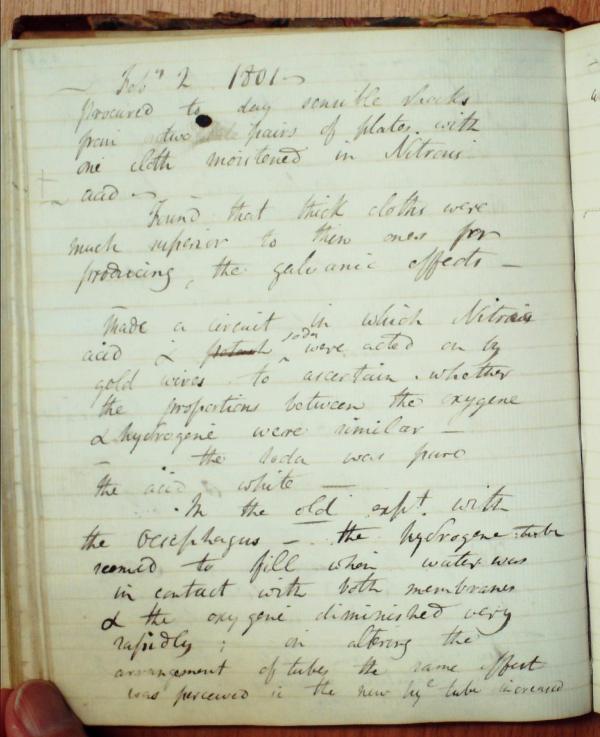 Feby 2 1801 —
procured to day sensible shocks
from two pairs of plates with
one cloth moistened in Nitrous
acid —
Found that thick cloths were
much superior to thin ones for
producing, the galvanic effects —
Made a circuit in which Nitrous
acid & potash soda were acted on by
gold wires to ascertain whether
the proportions between the oxygene
& hydrogene were similar —
— the soda was pure
the acid white —
In the old expt. with
the Oesephagus — the hydrogene tube
seemed to fill when water was
in contact with both membranes
& the oxygene diminished very
rapidly; on altering the
arrangement of tubes the same effect
was perceived ie the new hye tube increased